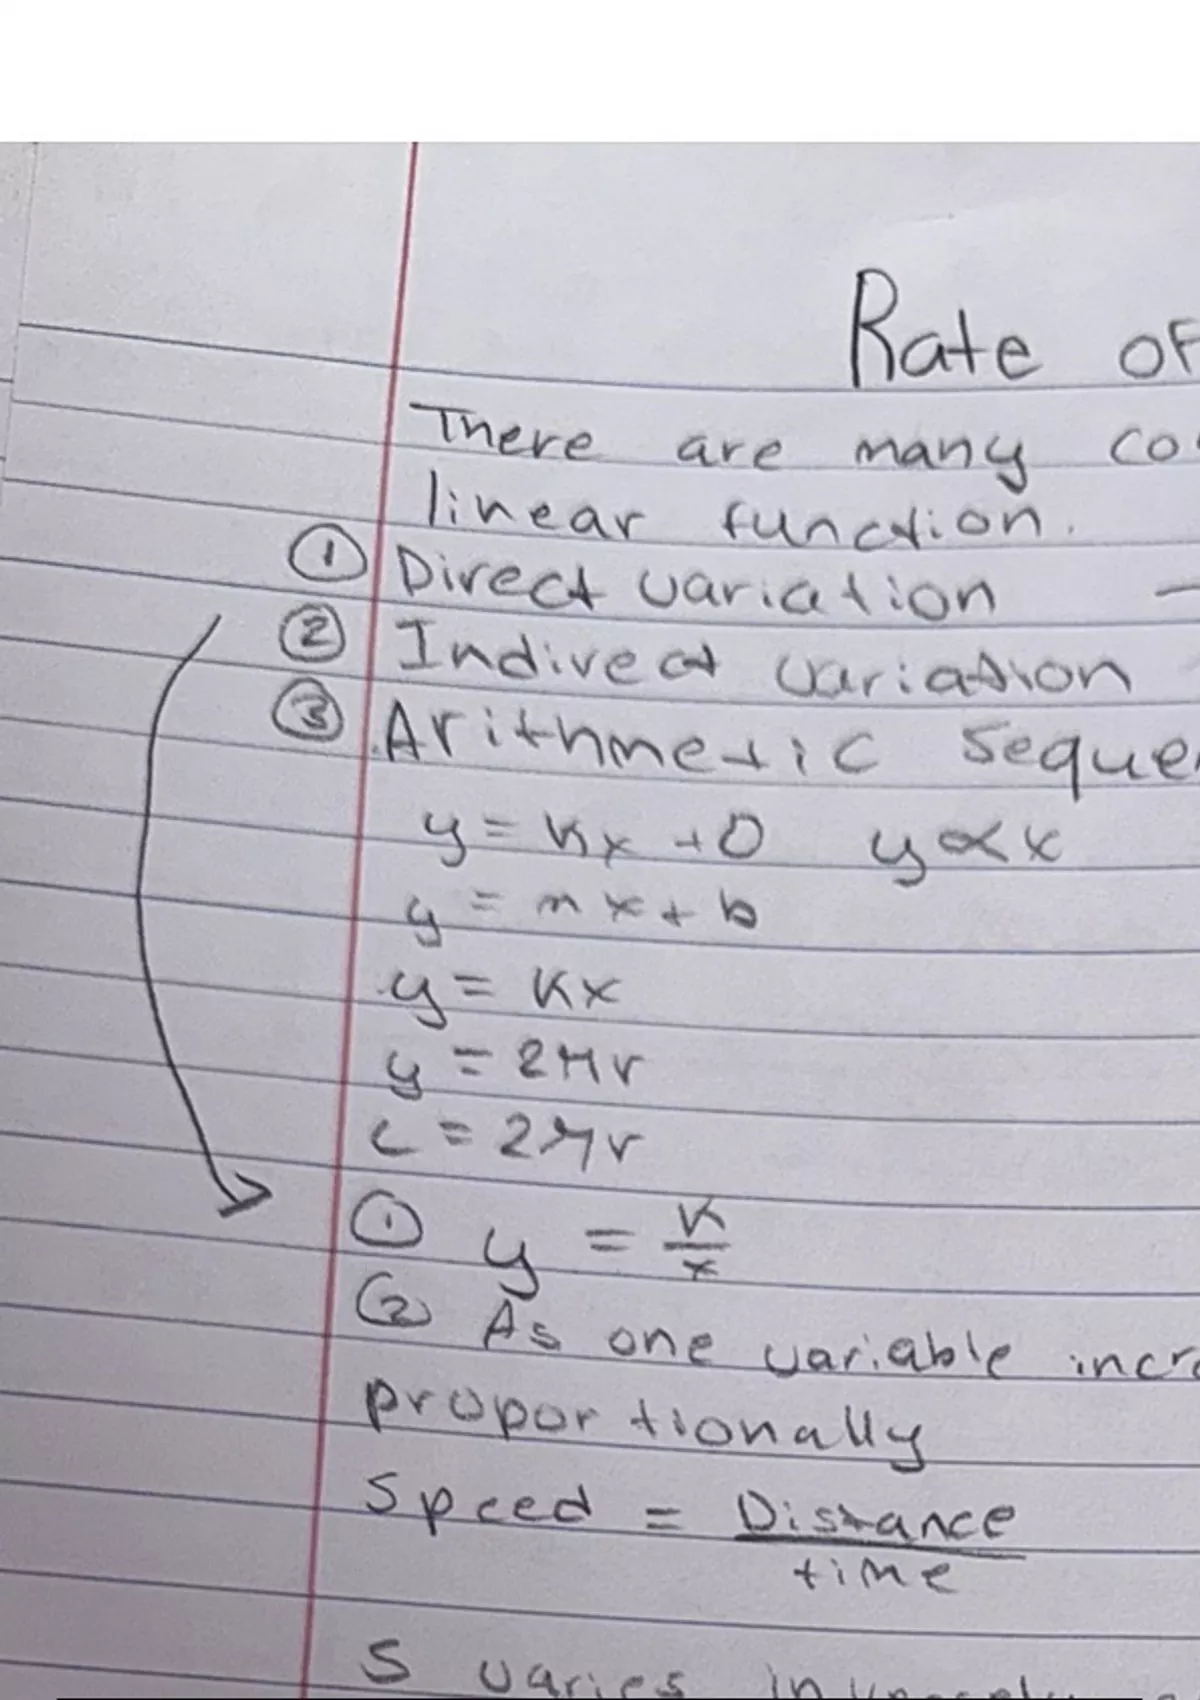 Rate of
There are many co
linear function.
① Direct variation -
② Indirect variation
③ Arithmetic seque
y = kx + 0 y ∝ x
y = mx + b
y = kx
y = 2πr
c = 2πr
① y = k/x
② As one variable incre
proportionally
Speed = Distance
time
S varies inversely